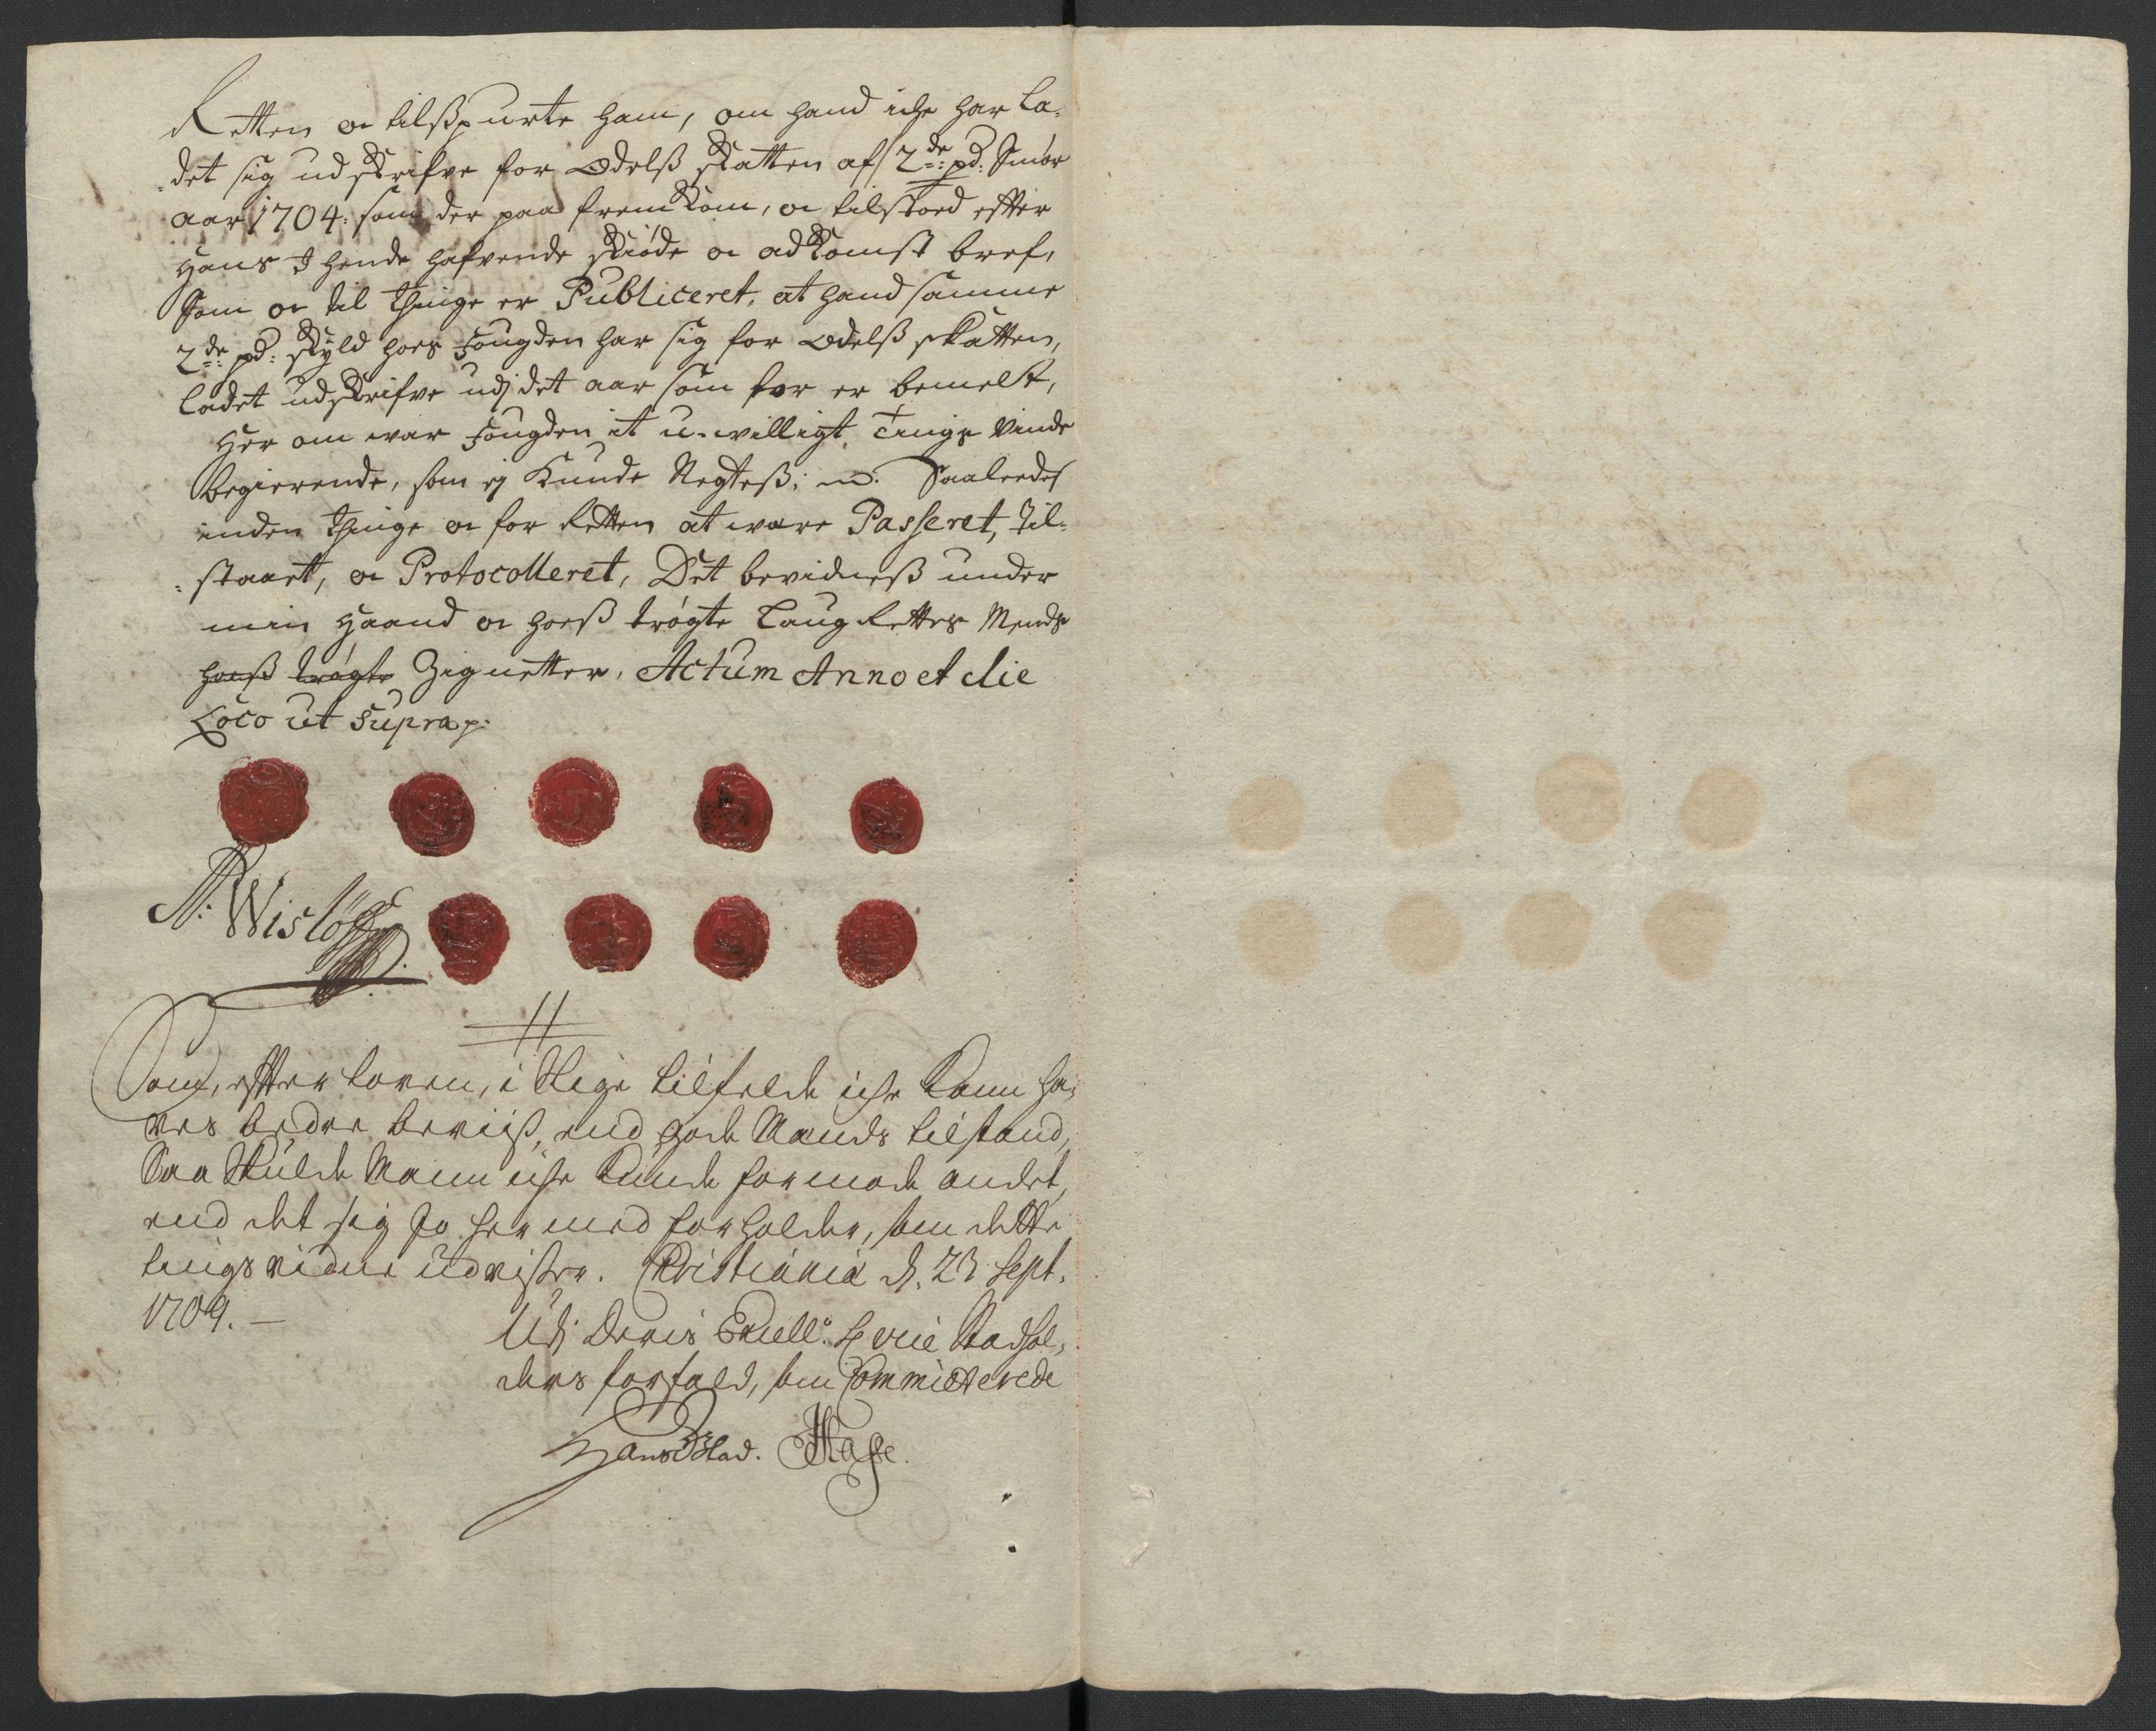 Retten oc tilspurte ham, om hand iche har la-
det sig udskrifve for Odelß skatten af 2de: pd: Smör
aar 1704: som der paa fremkom, oc tilstoed efter
Hans I hende hafvende skiöde oc adkomst bref,
Som oc til Thinge er Publiceret, at hand samme
2de: pd: skyld hoes Fougden har sig for Odelß skatten,
ladet udskrifve udj det aar som for er bemelt,
Her om war Fougden it u-willigt Tings vinde
begierende, som ej kunde Negteß; Saaledes
inden Thinge oc for Retten at were Passeret, Til-
staaet, oc Protocolleret, Det bevidneß under
min Haand oc hoeß trögte Laug Rettes Mends
hoeß trögte Zignetter, Actum Anno et die
Loco ut supra p:
N: Wislöff
Som, efter loven, i slige tilfelde iche kann ha-
ves bedre beviiß, end gode Mands tilstand,
Saa skulde Mann iche kunde formode andet,
end det sig jo her med forholder, som dette
tingsvidne udviser. Christiania d. 23 Sept.
1709. —
Udj Deris Excell: Herre Stadhol-
ders forfald, som Committerede